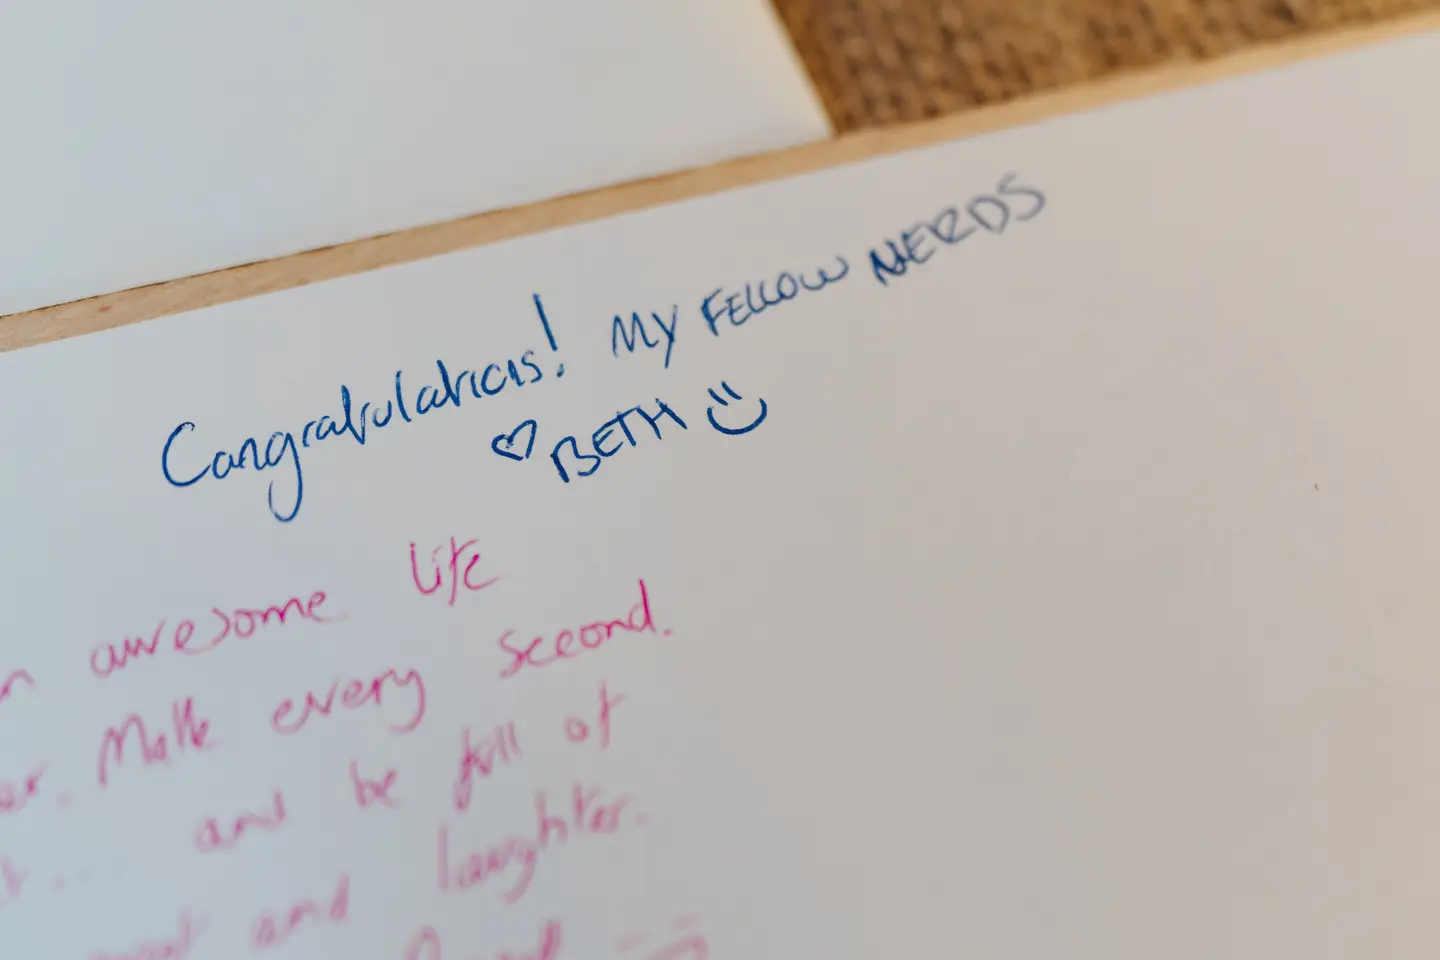 Congratulations! MY FELLOW NERDS
♡ BETH
awesome life
Make every second.
and be full of
and laughter.